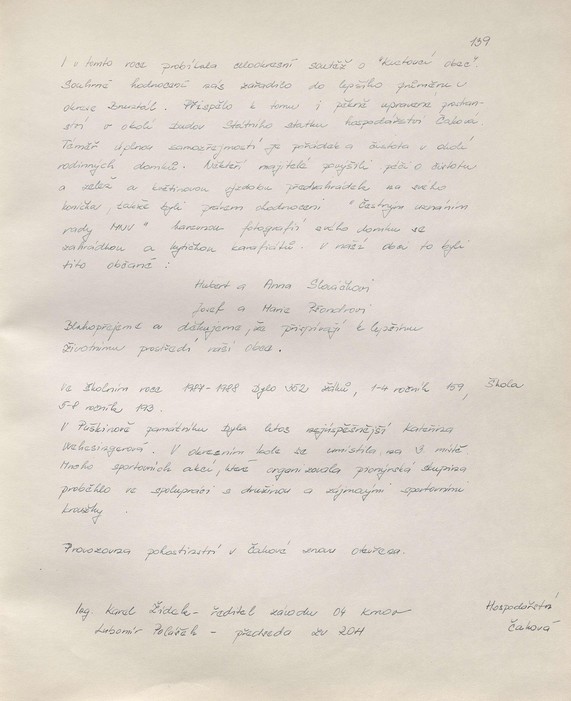 139
I v tomto roce probíhala celookresní soutěž o "Kvetoucí obec".
Souhrnné hodnocení nás zařadilo do lepšího průměru v
okrese Bruntál. Přispělo k tomu i pěkně upravené prostran-
ství v okolí budov Státního statku hospodářství Čaková.
Téměř úplnou samozřejmostí je pořádek a čistota v okolí
rodinných domků. Někteří majitelé povýšili péči o čistotu
a zeleň a květinovou výzdobu předzahrádek na svého
koníčka, takže byli právem ohodnoceni "Čestným uznáním
rady MNV" barevnou fotografií svého domku se
zahrádkou a kytičkou karafiátků. V naší obci to byli
tito občané:
Hubert a Anna Slováčkovi
Josef a Marie
Blahopřejeme a děkujeme, že přispívají k lepšímu
životnímu prostředí naší obce.
Ve školním roce 1987-1988 bylo 352 žáků, 1-4 ročník 159, Škola
5-8 ročník 193.
V Puškinově památníku byla letos nejúspěšnější Kateřina
V okresním kole se umístila na 3 místě
Mnoho sportovních akcí, které organizovala pionýrská skupina
proběhlo ve spolupráci s družinou a zájmovými sportovními
kroužky
Provozovna pohostinství v Čakové znovu otevřena.
Ing. Karel Žídek - ředitel závodu 04 Krnov Hospodářství
Lubomír Poláček - předseda ZV ROH Čaková